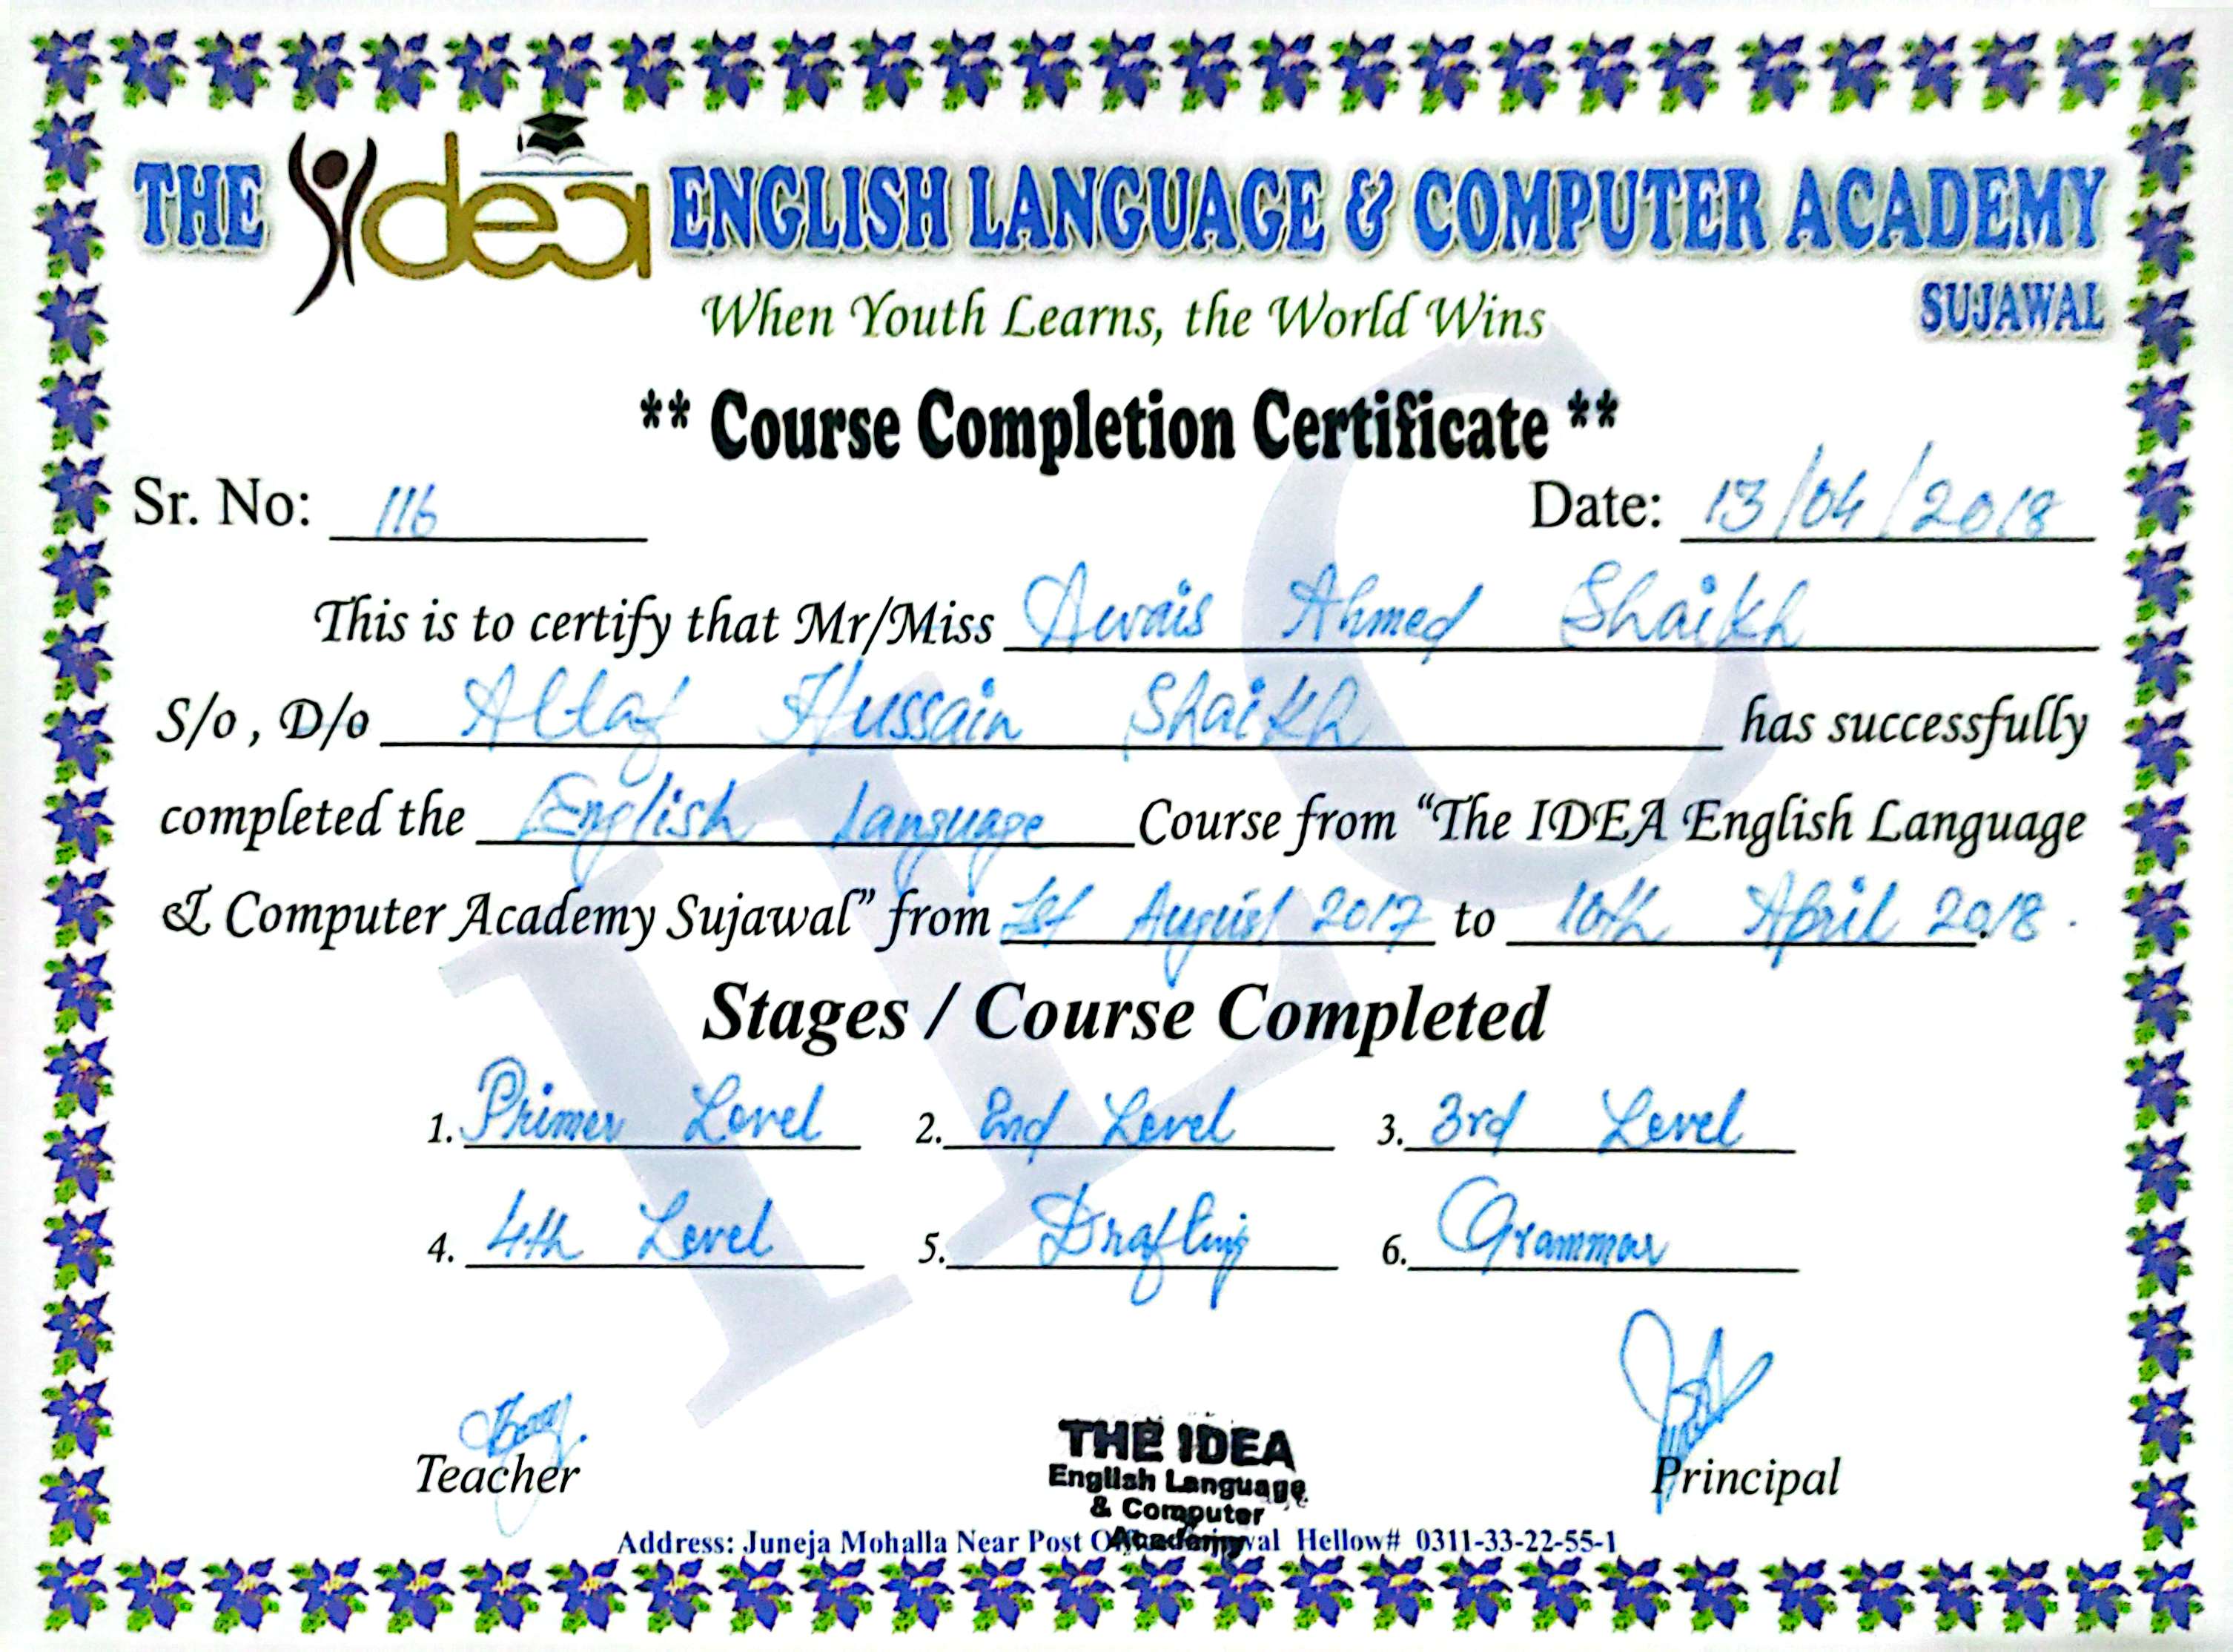 THE idea ENGLISH LANGUAGE & COMPUTER ACADEMY
SUJAWAL
When Youth Learns, the World Wins
** Course Completion Certificate **
Sr. No: 116 Date: 13/04/2018
This is to certify that Mr/Miss Awais Ahmed Shaikh
S/o , D/o Altaf Hussain Shaikh has successfully
completed the English Language Course from “The IDEA English Language
& Computer Academy Sujawal” from 1st August 2017 to 10th April 2018.
Stages / Course Completed
1. Primer Level 2. 2nd Level 3. 3rd Level
4. 4th Level 5. Drafting 6. Grammar
Teacher Principal
THE IDEA
English Language
& Computer
Academy
Address: Juneja Mohalla Near Post Hellow# 0311-33-22-55-1
ILC